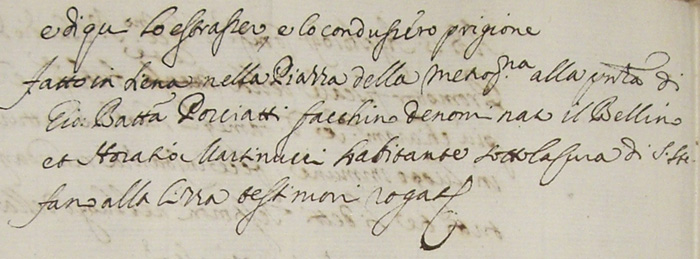 e di qui lo estrasser e lo condussero prigione
fatto in Siena nella Piazza della Metrop.na alla p̃nza di
Gio: Batta Porciatti facchino denominat il Bellino
et Horatio Martinucci habitante sotto la cura di S. Ste
fano alla Lizza testimoni rogati